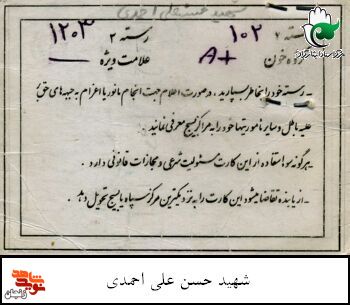 شهید حسن علی احمدی
دسته ۲ ۱۰۲ دسته ۲ ۱۲۰۳
گروه خون A+ علامت ویژه —
- دسته خود را بخاطر بسپارید، و در صورت اعلام جهت انجام مانور یا اعزام به جبهه های حق
علیه باطل و سایر مأموریتها خود را به مراکز بسیج معرفی نمائید.
- هرگونه سوء استفاده از این کارت مسئولیت شرعی و مجازات قانونی دارد.
- از یابنده تقاضا میشود این کارت را به نزدیکترین مرکز سپاه یا بسیج تحویل دهد.
شهید حسن علی احمدی
نوید شاهد